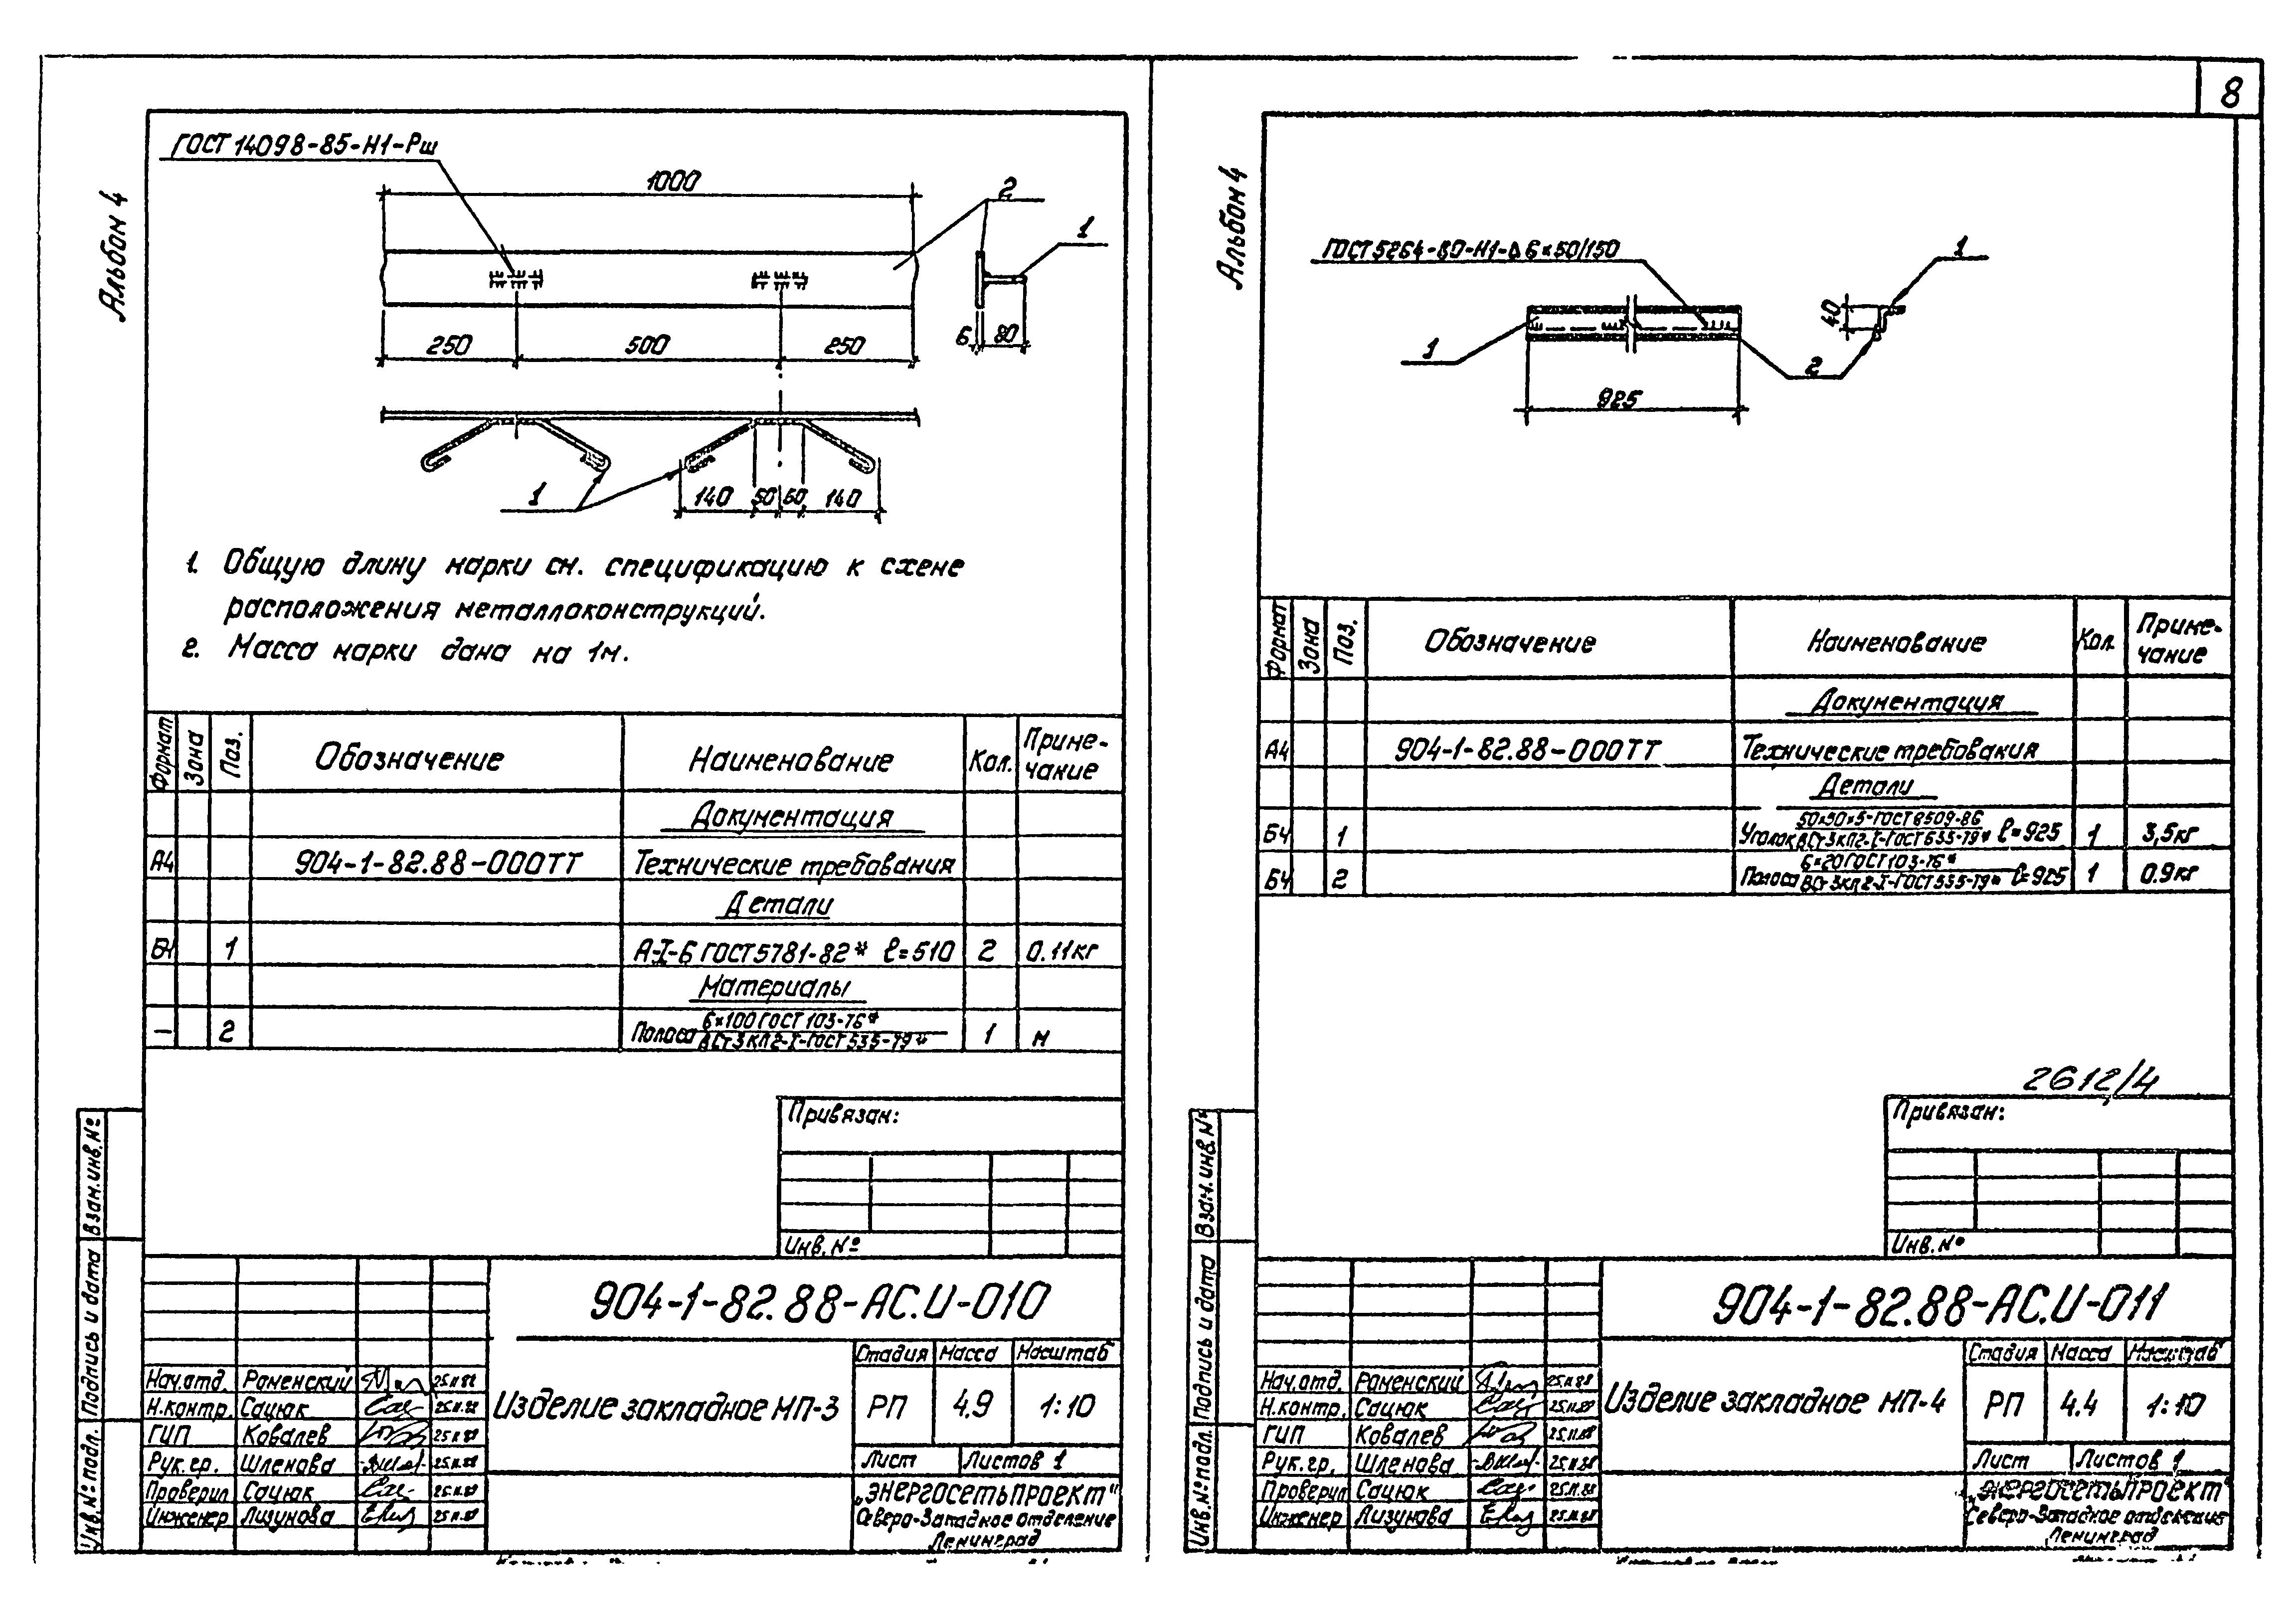 8
Альбом 4
ГОСТ 14098-85-Н1-Рш
1000
2
1
250
500
250
6
80
1
140
50
50
140
1. Общую длину марки см. спецификацию к схеме
расположения металлоконструкций.
2. Масса марки дана на 1м.
Формат Зона Поз. Обозначение Наименование Кол. Приме-
чание
Документация
А4 904-1-82.88-000ТТ Технические требования
Детали
Б4 1 А-I-6 ГОСТ 5781-82* ℓ=510 2 0.11кг
Материалы
— 2 Полоса 6×100 ГОСТ 103-76* 1 м
ВСт3кп2-I-ГОСТ 535-79*
Привязан:
Инв.№
Взам.инв.№
Подпись и дата
Инв.№ подл.
904-1-82.88-АС.И-010
Стадия Масса Масштаб
Изделие закладное МП-3 РП 4.9 1:10
Лист Листов 1
Нач.отд. Раменский 25.11.88
Н.контр. Сацюк 25.11.88
ГИП Ковалев 25.11.88
Рук.гр. Шленова 25.11.88
Проверил Сацюк 25.11.88
Инженер Лизунова 25.11.88
„ЭНЕРГОСЕТЬПРОЕКТ"
Северо-Западное отделение
Ленинград
Альбом 4
ГОСТ 5264-80-Н1-Δ6×50/150
1
40
1
2
925
Формат Зона Поз. Обозначение Наименование Кол. Приме-
чание
Документация
А4 904-1-82.88-000ТТ Технические требования
Детали
Б4 1 Уголок 50×50×5-ГОСТ 8509-86 ℓ=925 1 3,5кг
ВСт3кп2-I-ГОСТ 535-79*
Б4 2 Полоса 6×20 ГОСТ 103-76* ℓ=925 1 0.9кг
ВСт3кп2-I-ГОСТ 535-79*
2612/4
Привязан:
Инв.№
Взам.инв.№
Подпись и дата
Инв.№ подл.
904-1-82.88-АС.И-011
Стадия Масса Масштаб
Изделие закладное МП-4 РП 4.4 1:10
Лист Листов 1
Нач.отд. Раменский 25.11.88
Н.контр. Сацюк 25.11.88
ГИП Ковалев 25.11.88
Рук.гр. Шленова 25.11.88
Проверил Сацюк 25.11.88
Инженер Лизунова 25.11.88
„ЭНЕРГОСЕТЬПРОЕКТ"
Северо-Западное отделение
Ленинград